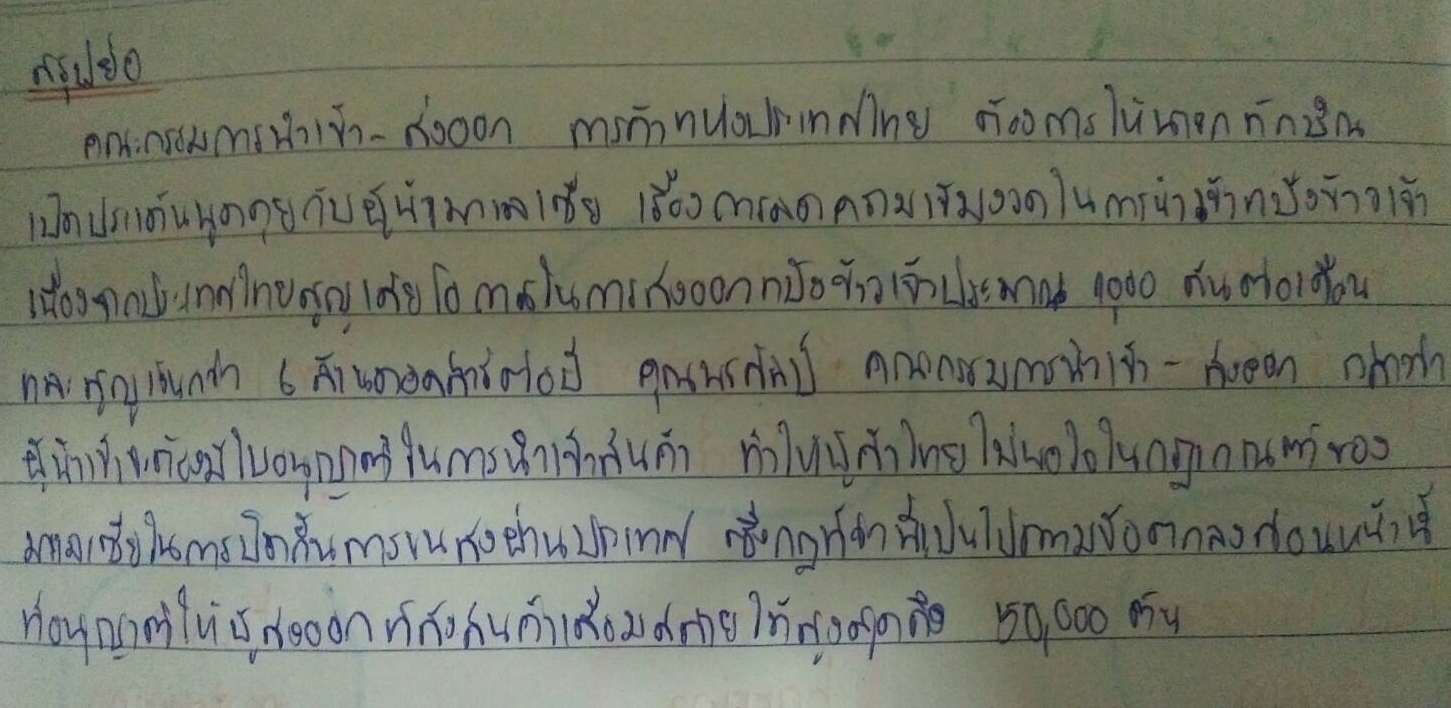 สรุปย่อ
คณะกรรมการนำเข้า - ส่งออก การค้าแห่งประเทศไทย ต้องการให้นายกทักษิณ
เปิดประเด็นพูดคุยกับผู้นำมาเลเซีย เรื่องการลดความเข้มงวดในการนำเข้าแป้งข้าวเจ้า
เนื่องจากประเทศไทยสูญเสียโอกาสในการส่งออกแป้งข้าวเจ้าประมาณ 1,000 ตันต่อเดือน
และสูญเงินกว่า 6 ล้านดอลล่าร์ต่อปี คุณพรศิลป์ คณะกรรมการนำเข้า - ส่งออก กล่าวว่า
ผู้นำเข้าจะต้องมีใบอนุญาติในการนำเข้าสินค้า ทำให้ผู้ค้าไทยไม่พอใจในกฎเกณฑ์ของ
มาเลเซียในการปิดกั้นการขนส่งผ่านประเทศ ซึ่งกฎที่ว่านี้เป็นไปตามข้อตกลงก่อนหน้านี้
ที่อนุญาติให้ผู้ส่งออกที่ส่งสินค้าเสื่อมสลายได้สูงสุดถึง 50,000 ตัน